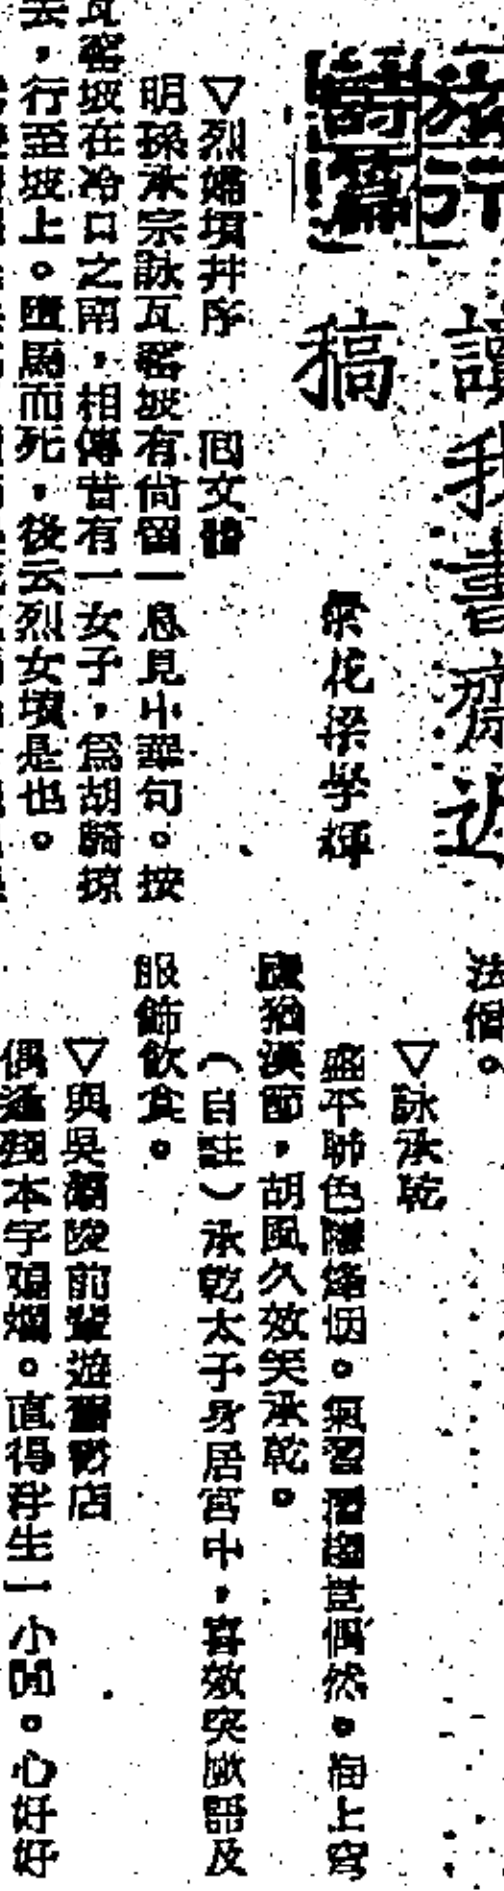 旅行
詩篇
讀我書齋近
稿
梁花梁學輝
▽烈婦墳并序　回文體
明孫承宗詠瓦窰坡有尚留一息見中華句。按
瓦窰坡在冷口之南，相傳昔有一女子，爲胡騎掠
去，行至坡上。墮馬而死，後云烈女墳是也。
法僧。
▽詠承乾
盛平聯色隱烽烟。氣習豈偶然。海上窮
猶漢節，胡風久效笑承乾。
（自註）承乾太子身居宮中，喜效突厥語及
服飾飲食。
▽與吳前輩遊舊書店
偶逢殘本字。直得浮生一小閒。心好好